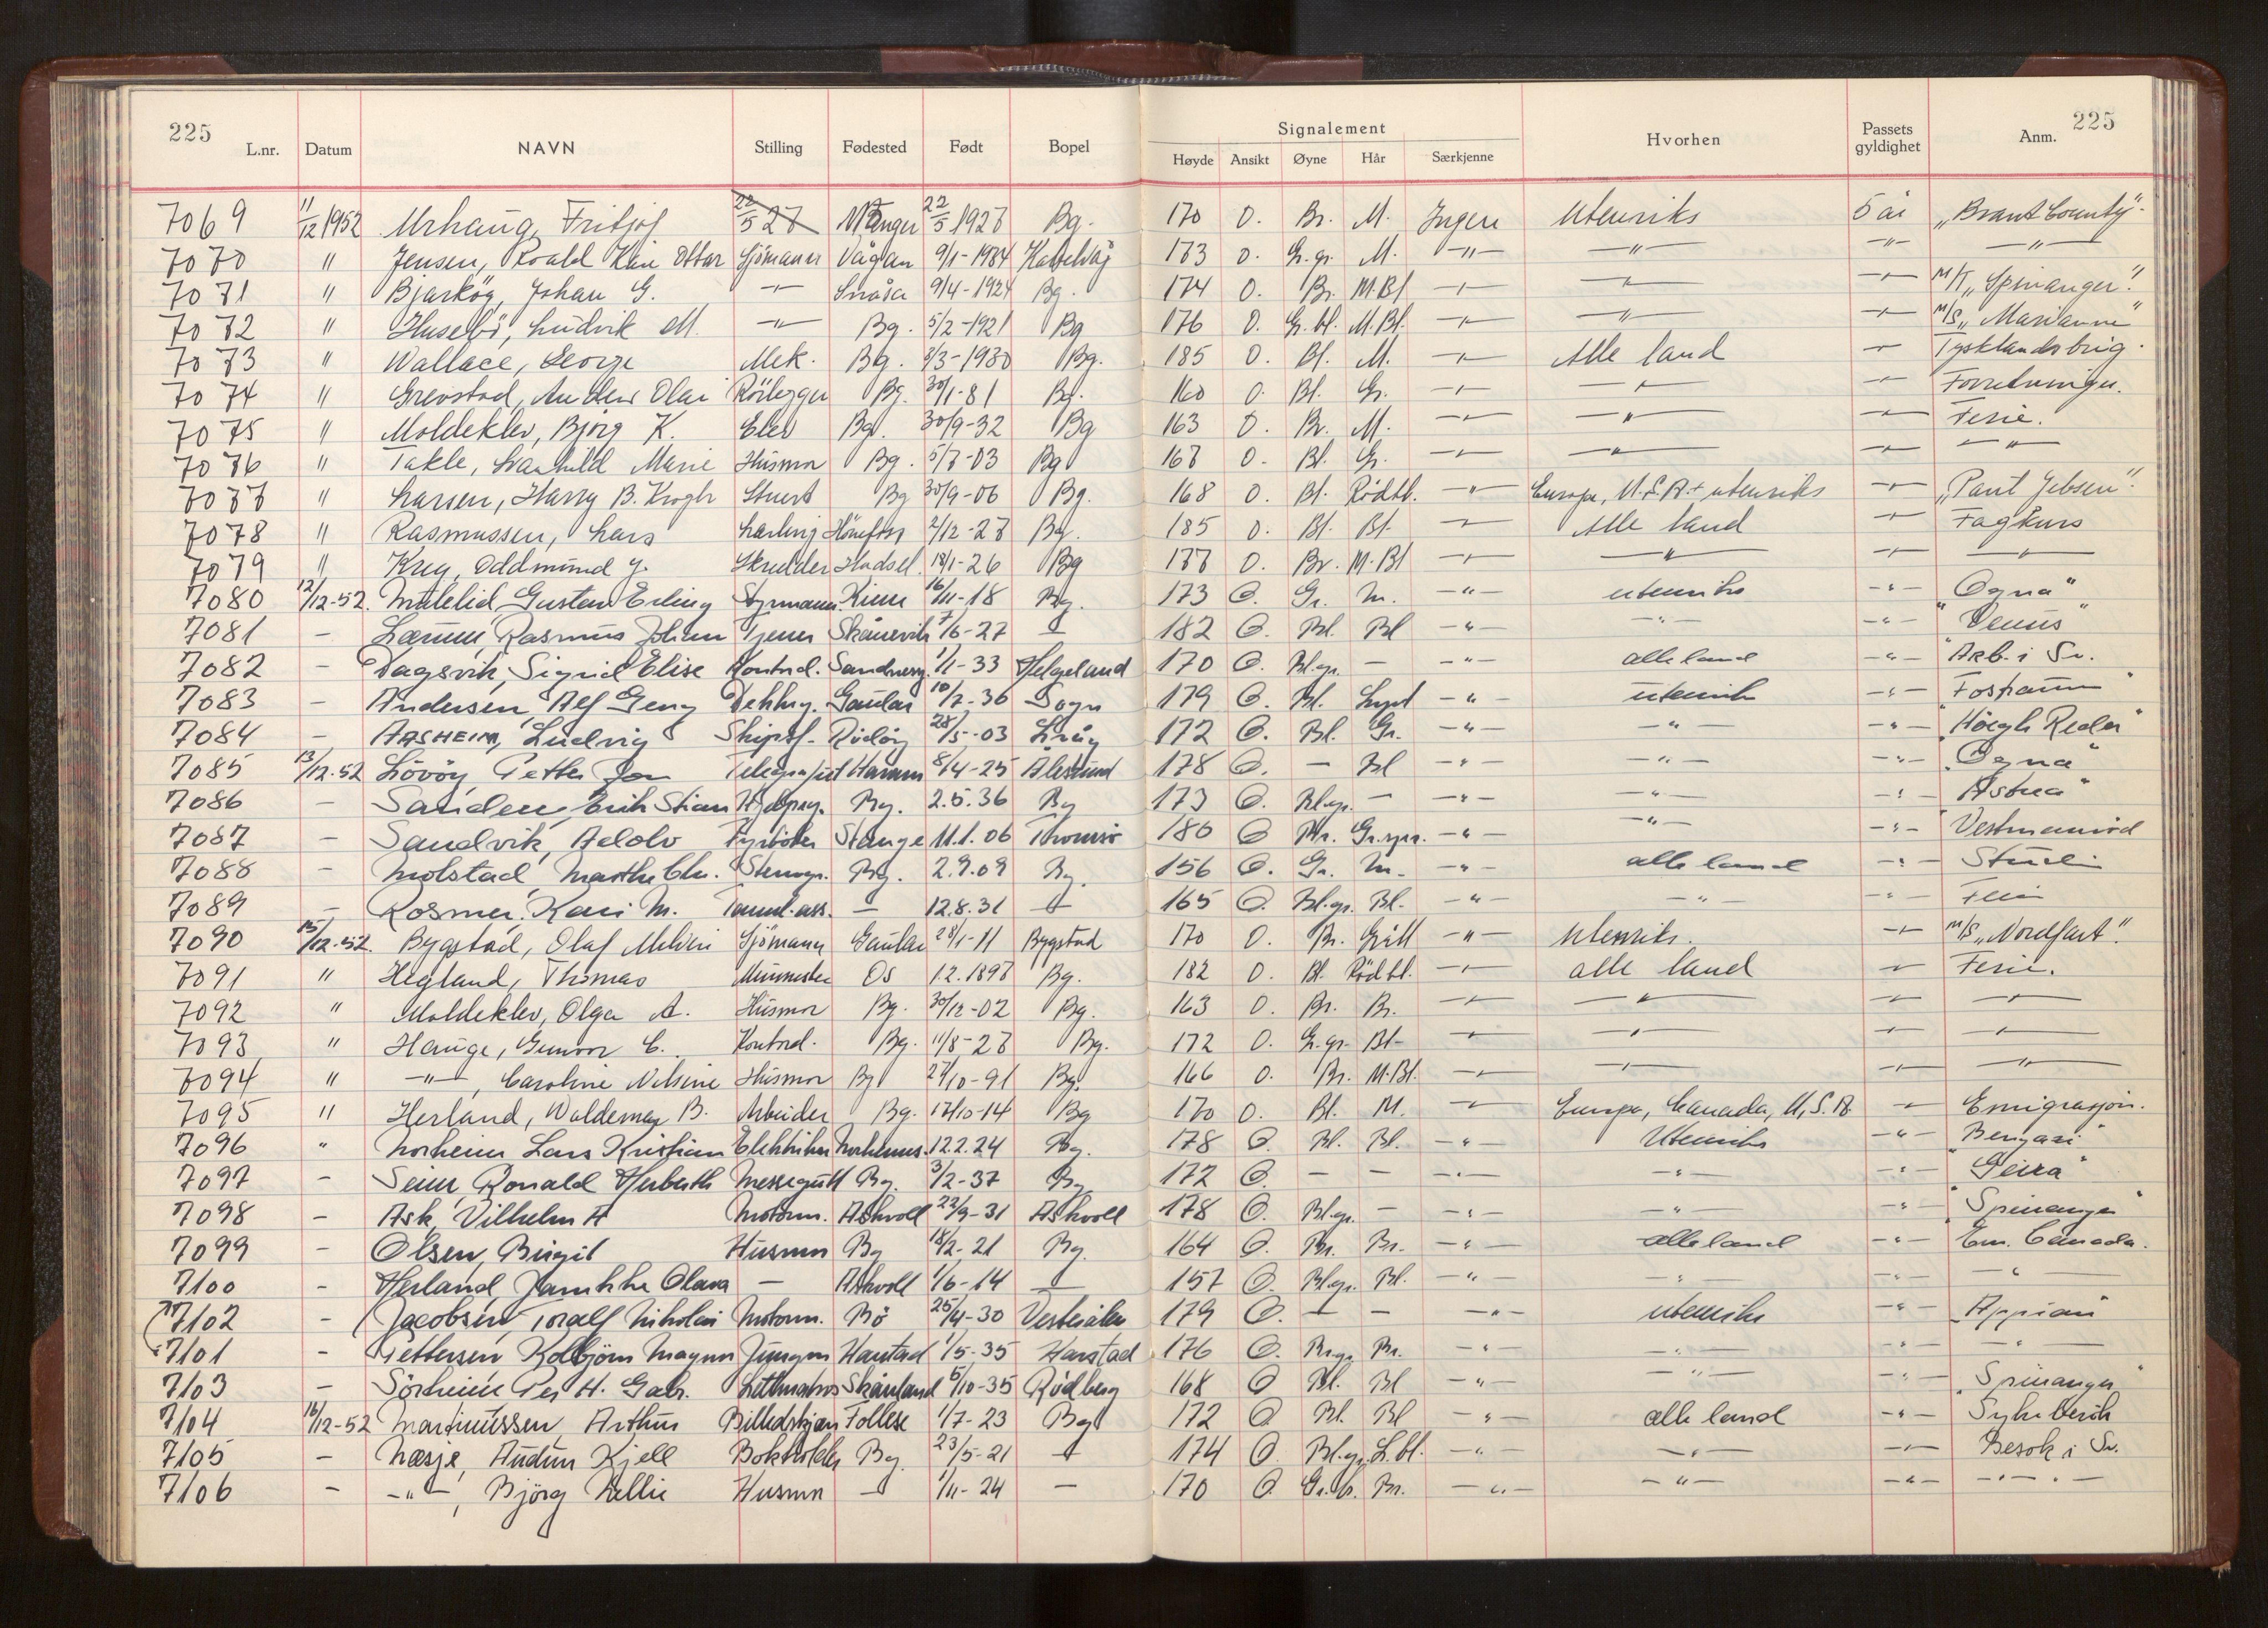 225 225
Signalement
L.nr. Datum NAVN Stilling Fødested Født Bopel Høyde Ansikt Øyne Hår Særkjenne Hvorhen Passets gyldighet Anm.
7069 11/12 1952 Urhaug, Fritjof 22/5 27 Manger 22/5 1927 Bg. 170 O. Br. M. Ingen Utenriks 5 år „Brant County".
7070 " Jensen, Roald Kåre Ottar Sjømann Vågan 9/1-1934 Kabelvåg 173 O. G.gr. M. -"- -"- -"- -"-
7071 " Bjarkøy, Johan G. -"- Snåsa 9/4-1924 Bg. 174 O. Br. M.Bl -"- -"- -"- M/T „Spinanger".
7072 " Husebö, Ludvik M. -"- Bg. 5/2-1921 Bg 176 O. G.bl. M.Bl. -"- -"- -"- M/S „Marianne"
7073 " Wallace, George Mek. Bg. 8/3-1930 Bg. 185 O. Bl. M. -"- Alle land -"- Tysklandsbrig.
7074 " Grevstad, Anders Olai Rörlegger Bg. 30/1-81 Bg. 160 O. Bl. Gr. -"- -"- -"- Forretninger.
7075 " Moldeklev, Bjørg K. Elev Bg. 30/9-32 Bg 163 O. Br. M. -"- -"- -"- Ferie.
7076 " Takle, Svanhild Marie Husmor Bg. 5/7-03 Bg 167 O. Bl. Gr. -"- -"- -"- -"-
7077 " Larsen, Harry B. Krogh Stuert Bg 30/9-06 Bg. 168 O. Bl. Rødbl. -"- Europa, U.S.A + utenriks -"- „Paul Jebsen".
7078 " Rasmussen, Lars Lærling Hönefoss 2/12-27 Bg. 185 O. Bl. Bl. -"- Alle land -"- Fagkurs
7079 " Krey, Oddmund J. Skredder Hadsel 18/1-26 Bg 177 O. Br. M.Bl -"- -"- -"- -"-
7080 12/12-52. Mulelid, Gustav Erling Styrmann Kinn 16/11-18 Bg. 173 O. Gr. M. -"- utenriks -"- "Ogna"
7081 - Lamm, Rasmus Johan Tjener Skånevik 7/6-27 - 182 O. Bl. Bl -"- -"- -"- "Venus"
7082 - Dagsvik, Sigrid Elise Kontord. Sandnessj. 1/1-33 Helgeland 170 O. Bl.gr. - -"- alle land -"- Arb. i Sv.
7083 - Andersen, Alf Geng Dekksg. Gaular 10/7-36 Sogn 179 O. Bl. Lyst -"- utenriks -"- "Fosstaum"
7084 - AASHEIM, Ludvig Skipsf. Rödöy 28/5-03 225 172 O. Bl. Gr. -"- -"- -"- "Höegh Reder"
7085 13/12-52 Lövöy Petter Jon Telegrafist Haram 8/4-25 Ålesund 178 O. - Bl -"- -"- -"- "Ogna"
7086 - Sanden, Erik Stian Hjelpeg. Bg. 2.5.36 Bg 173 O. Bl.gr. - -"- -"- -"- "Astrea"
7087 - Sandvik, Adolv Fyrböter Stange 11.1.06 Tromsö 180 O Br. Gr.spr. -"- -"- -"- "Vestmanrød
7088 - Molstad, Marthe Chr. Stenogr. Bg. 2.9.09 Bg. 156 O. Gr. M. -"- alle land -"- Studie
7089 - Rosmer, Kari M. Tannl.ass. - 12.8.31 - 165 O. Bl.gr. Bl. -"- -"- -"- Ferie
7090 15/12-52. Bygstad, Olaf Mildor Sjömann Gaular 28/1-11 Bygstad 170 O. Br. Grått -"- Utenriks. -"- M/S „Nordfart".
7091 " Hegland, Thomas Murmester Os 1.2.1897 Bg. 182 O. Bl. Rødbl. -"- alle land -"- Ferie.
7092 " Moldeklev, Olga A. Husmor Bg. 30/12-02 Bg. 163 O. Br. Br. -"- -"- -"- -"-
7093 " Hauge, Gunvor C. Kontord. Bg. 11/8-27 Bg. 172 O. G.gr. Bl- -"- -"- -"- -"-
7094 " -"-, Caroline Nelsine Husmor Bg 27/10-91 Bg. 166 O. Br. M.Bl. -"- -"- -"- -"-
7095 " Herland, Waldemar B. Arbeider Bg. 17/10-14 Bg 170 O. Bl. M. -"- Europa, Canada, U.S.A -"- Emigrasjon.
7096 " Norheim Lars Kristian Elektriker Norheims. 12.2.24 Bg. 178 O. Bl. Bl. -"- Utenriks -"- "Bengazi"
7097 - Seim, Ronald Herberth Messegutt Bg. 3/2-37 Bg 172 O. - - -"- -"- -"- "Geira"
7098 - Ask, Vilhelm A Motorm. Askvoll 22/9-31 Askvoll 178 O. Bl.gr. - -"- -"- -"- "Spinanger"
7099 - Olsen, Birgit Husmor Bg 18/2-21 Bg. 164 O. Br. Br. -"- alle land -"- Em. Canada.
7100 - Herland Jannikke Olava - Askvoll 1/6-14 - 157 O. Bl.gr. Bl. -"- -"- -"- -"-
7102 - Jacobsen, Toralf Nikolai Motorm. Bö 25/4-30 Vesterålen 179 O. - - -"- utenriks -"- "Appian"
7101 - Pettersen Kolbjörn Magnus Jungm Harstad 1/5-35 Harstad 176 O. Br.gr. Br. -"- -"- -"- -"-
7103 - Sörheim Per H. Gabr. Lettmatros Skånland 5/10-35 Rödberg 168 O Bl. Bl -"- -"- -"- "Spinanger"
7104 16/12-52 Martinussen, Arthur Billedskjær. Follese 1/7-23 Bg 172 O Bl. Bl -"- alle land -"- Sykebesök
7105 - Næsje, Audun Kjell Bokholder Bg. 23/5-21 - 174 O. Bl.gr. L.bl. -"- -"- -"- Besök i Sv.
7106 - -"-, Björg Lillie Husmor - 1/11-24 - 170 O. Gr.b. Br. -"- -"- -"- -"-